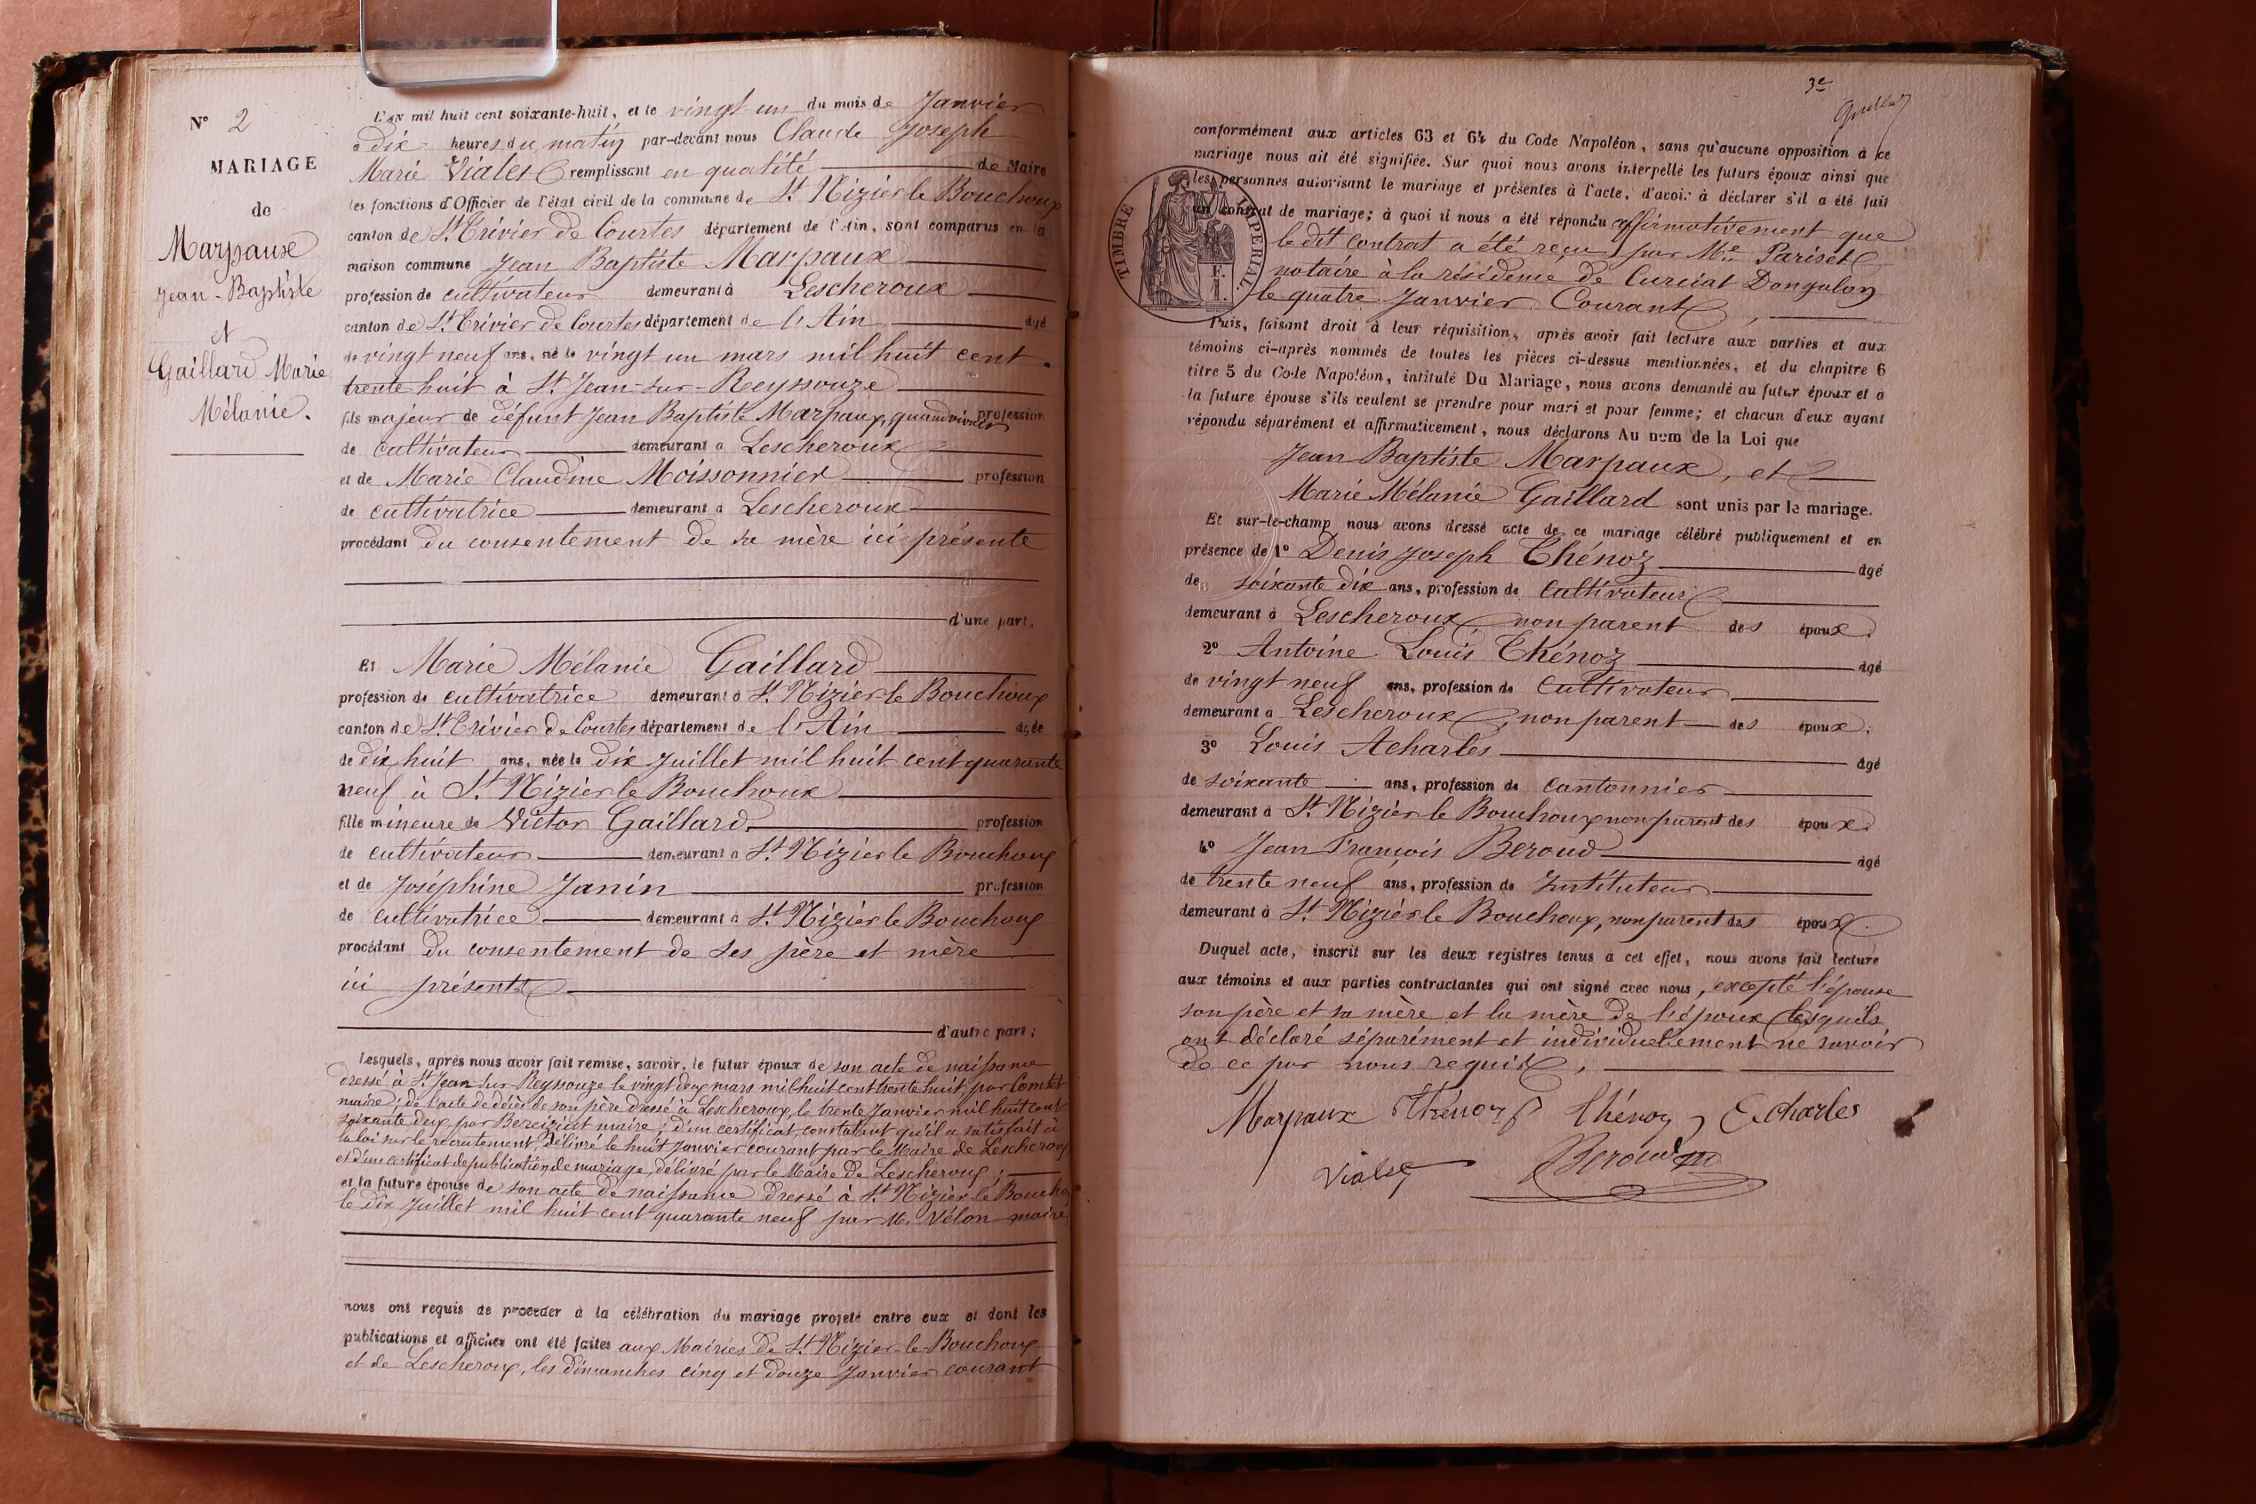 N° 2
MARIAGE
de
Marpaux
Jean-Baptiste
et
Gaillard Marie
Mélanie.
L'an mil huit cent soixante-huit, et le vingt-un du mois de Janvier
à dix heures du matin par-devant nous Claude Joseph
Marie Viales remplissant en qualité de Maire
les fonctions d'Officier de l'état civil de la commune de St Nizier le Bouchoux
canton de St Trivier de Courtes département de l'Ain, sont comparus en la
maison commune Jean Baptiste Marpaux
profession de cultivateur demeurant à Lescheroux
canton de St Trivier de Courtes département de l'Ain âgé
de vingt neuf ans, né le vingt un mars mil huit cent
trente huit à St Jean-sur-Reyssouze
fils majeur de défunt Jean Baptiste Marpaux, quand vivait profession
de cultivateur demeurant à Lescheroux
et de Marie Claudine Moissonnier profession
de cultivatrice demeurant à Lescheroux
procédant du consentement de sa mère ici présente
d'une part,
Et Marie Mélanie Gaillard
profession de cultivatrice demeurant à St Nizier le Bouchoux
canton de St Trivier de Courtes département de l'Ain âgée
de dix huit ans, née le dix Juillet mil huit cent quarante
neuf à St Nizier le Bouchoux
fille mineure de Victor Gaillard profession
de cultivateur demeurant à St Nizier le Bouchoux
et de Joséphine Janin profession
de cultivatrice demeurant à St Nizier le Bouchoux
procédant du consentement de ses père et mère
ici présents
d'autre part;
Lesquels, après nous avoir fait remise, savoir, le futur époux de son acte de naissance
dressé à St Jean sur Reyssouze le vingt deux mars mil huit cent trente huit, par Comtet
maire; de l'acte de décès de son père dressé à Lescheroux, le trente Janvier mil huit cent
soixante deux, par maire; d'un certificat, constatant qu'il a satisfait à
la loi sur le recrutement, délivré le huit Janvier courant par le Maire de Lescheroux
et d'un certificat de publication de mariage, délivré par le Maire de Lescheroux;
et la future épouse de son acte de naissance dressé à St Nizier le Bouchoux
le dix Juillet mil huit cent quarante neuf par M. Vélon maire
nous ont requis de procéder à la célébration du mariage projeté entre eux et dont les
publications et affiches ont été faites aux Mairies de St Nizier le Bouchoux
et de Lescheroux, les dimanches cinq et douze Janvier courant
3e
conformément aux articles 63 et 64 du Code Napoléon, sans qu'aucune opposition à ce
mariage nous ait été signifiée. Sur quoi nous avons interpellé les futurs époux ainsi que
les personnes autorisant le mariage et présentes à l'acte, d'avoir à déclarer s'il a été fait
un contrat de mariage; à quoi il nous a été répondu affirmativement que
le dit contrat a été reçu par Me Pariset
notaire à la résidence de Curciat Dongalon
le quatre Janvier Courant,
TIMBRE IMPÉRIAL.
F.
Puis, faisant droit à leur réquisition, après avoir fait lecture aux parties et aux
témoins ci-après nommés de toutes les pièces ci-dessus mentionnées, et du chapitre 6
titre 5 du Code Napoléon, intitulé Du Mariage, nous avons demandé au futur époux et à
la future épouse s'ils veulent se prendre pour mari et pour femme; et chacun d'eux ayant
répondu séparément et affirmativement, nous déclarons Au nom de la Loi que
Jean Baptiste Marpaux, et
Marie Mélanie Gaillard sont unis par le mariage.
Et sur-le-champ nous avons dressé acte de ce mariage célébré publiquement et en
présence de 1° Denis Joseph Thénoz âgé
de soixante dix ans, profession de Cultivateur
demeurant à Lescheroux non parent des époux.
2° Antoine Louis Thénoz âgé
de vingt neuf ans, profession de Cultivateur
demeurant à Lescheroux, non parent des époux;
3° Louis Acharles âgé
de soixante ans, profession de cantonnier
demeurant à St Nizier le Bouchoux non parent des époux.
4° Jean François Beroud âgé
de trente neuf ans, profession de Instituteur
demeurant à St Nizier le Bouchoux, non parent des époux.
Duquel acte, inscrit sur les deux registres tenus à cet effet, nous avons fait lecture
aux témoins et aux parties contractantes qui ont signé avec nous, excepté l'épouse
son père et sa mère et la mère de l'époux lesquels
ont déclaré séparément et individuellement ne savoir
de ce par nous requis,
Marpaux Thénoz Thénoz Echarles
Viales Beroud